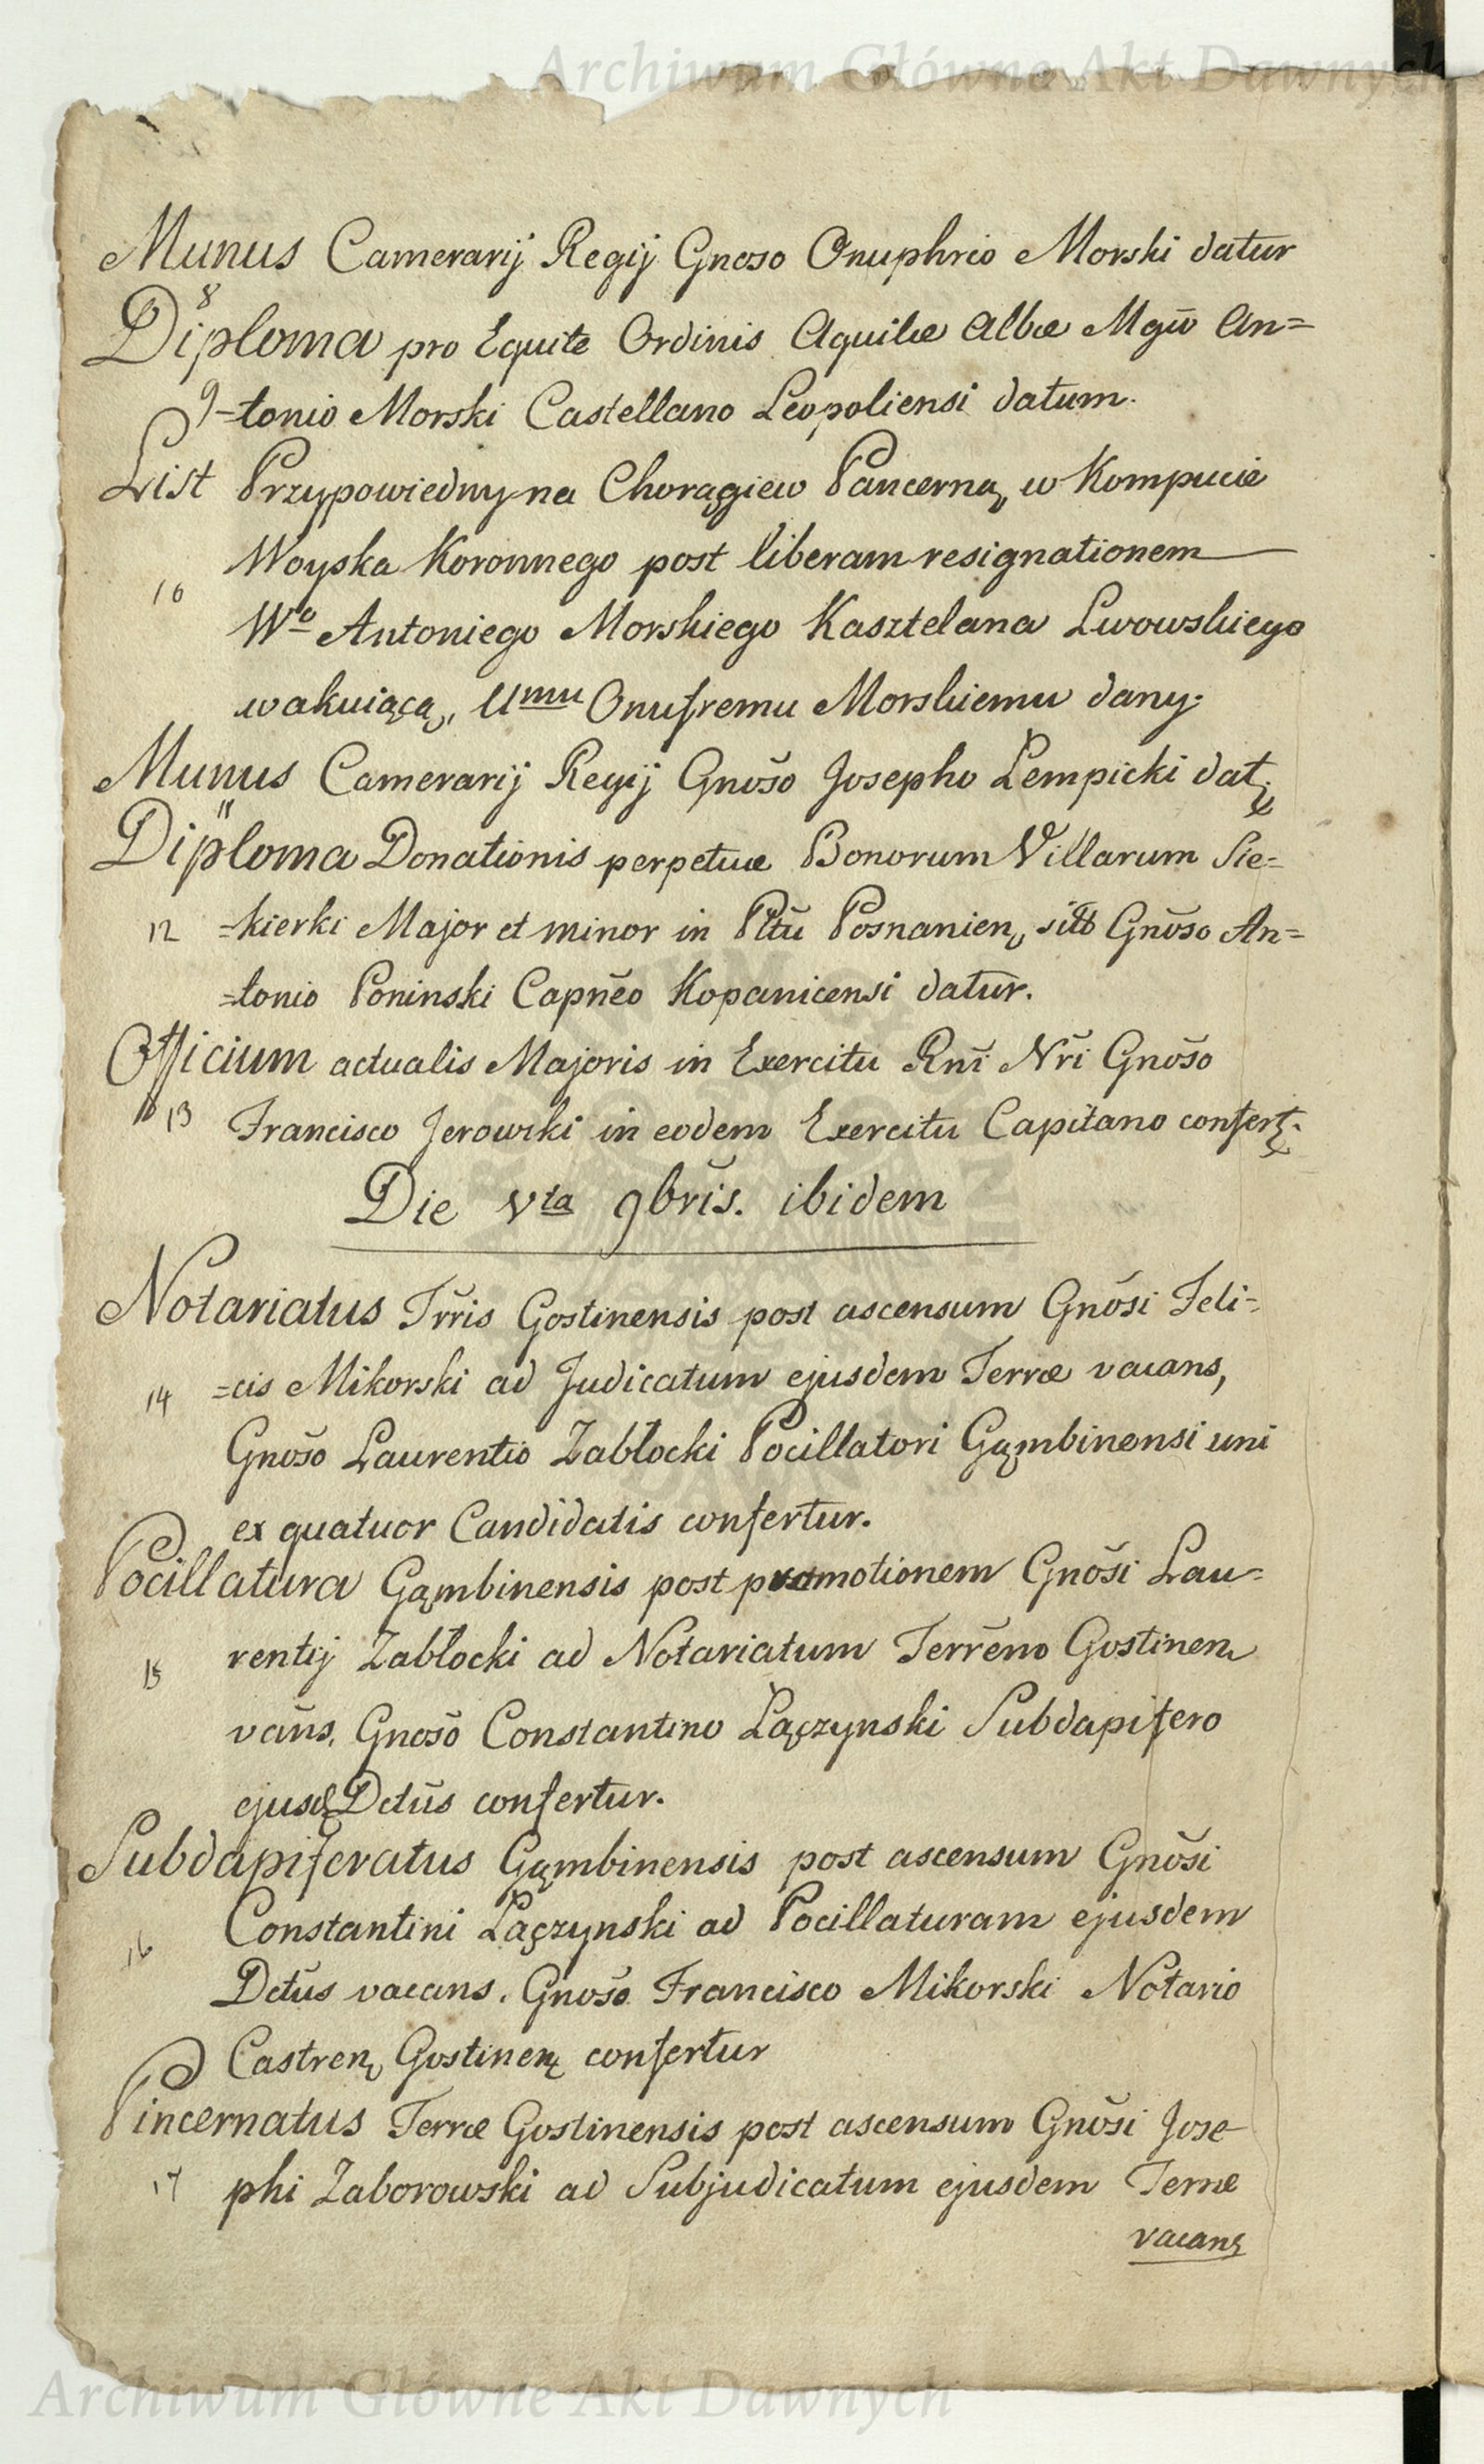 Archiwum Główne Akt Dawnych
Munus Camerarij Regij Gnoso Onuphrio Morski datur
8
Diploma pro Equite Ordinis Aquilæ Albæ Mgco An=
9 =tonio Morski Castellano Leopoliensi datum.
List Przypowiedny na Chorągiew Pancerną, w Kompucie
Woyska Koronnego post liberam resignationem
10
Wo Antoniego Morskiego Kasztelana Lwowskiego
wakuiącą, Umu Onufremu Morskiemu dany.
Munus Camerarij Regij Gnõso Josepho Lempicki dat.
11
Diploma Donationis perpetuæ Bonorum Villarum Sie=
12 =kierki Major et minor in Pltũ Posnanien, sitt Gnõso An=
=tonio Poninski Capnẽo Kopanicensi datur.
Officium actualis Majoris in Exercitu Rnĩ Nrĩ Gnõso
13 Francisco Jerowski in eodem Exercitu Capitano confert.
Die Vta 9brĩs. ibidem
Notariatus Trr̃is Gostinensis post ascensum Gnõsi Feli=
14 =cis Mikorski ad Judicatum ejusdem Terræ vacans,
Gnõso Laurentio Zabłocki Pocillatori Gąmbinensi uni
ex quatuor Candidatis confertur.
Pocillatura Gąmbinensis post promotionem Gnõsi Lau=
15 rentij Zabłocki ad Notariatum Terrẽm Gostinen
vañs, Gnõso Constantino Łączynski Subdapifero
ejusd Dctũs confertur.
Subdapiferatus Gąmbinensis post ascensum Gnõsi
Constantini Łączynski ad Pocillaturam ejusdem
16
Dctũs vacans, Gnõso Francisco Mikorski Notario
Castren, Gostinen confertur
Pincernatus Terræ Gostinensis post ascensum Gnõsi Jose
17 phi Zaborowski ad Subjudicatum ejusdem Terræ
vacans
Archiwum Główne Akt Dawnych